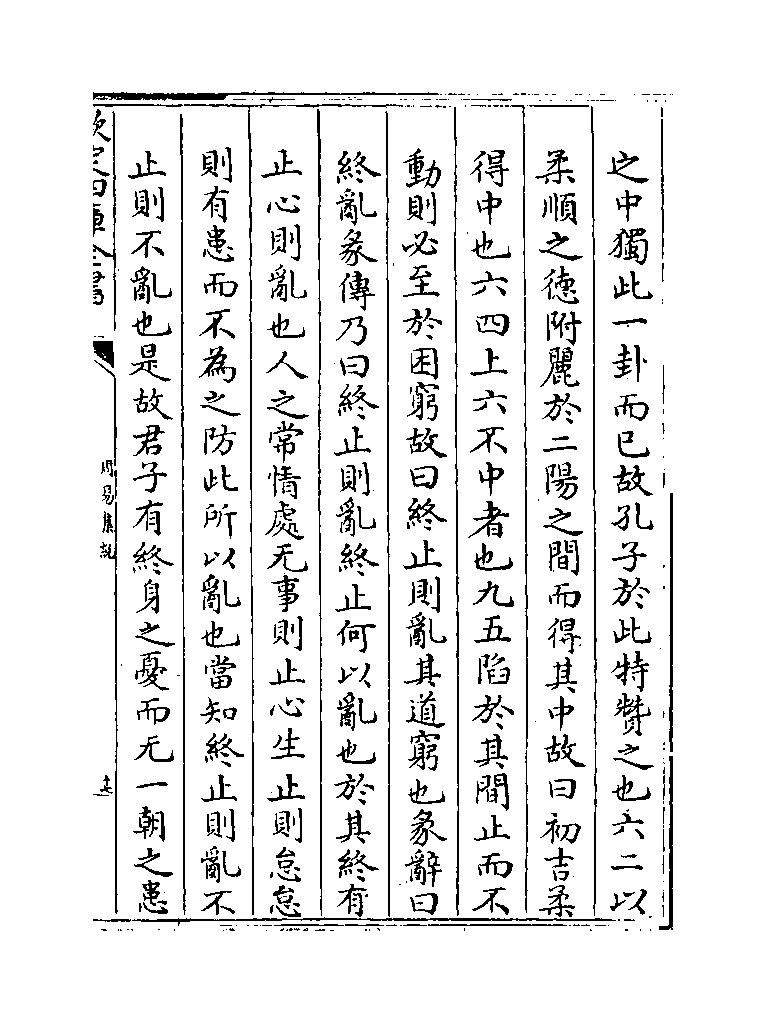 之中獨此一卦而已故孔子於此特贊之也六二以
柔順之德附麗於二陽之間而得其中故曰初吉柔
得中也六四上六不中者也九五陷於其間止而不
動則必至於困窮故曰終止則亂其道窮也彖辭曰
終亂彖傳乃曰終止則亂終止何以亂也於其終有
止心則亂也人之常情處无事則止心生止則怠怠
則有患而不為之防此所以亂也當知終止則亂不
止則不亂也是故君子有終身之憂而无一朝之患
欽定四庫全書
周易集說